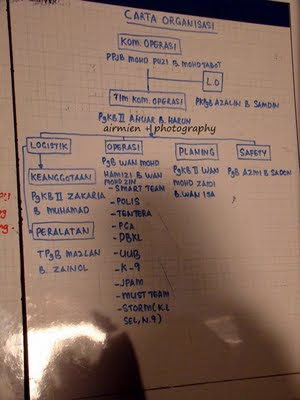 CARTA ORGANISASI
KOM. OPERASI
PPjB MOHD PUZI B. MOHD TABET
LO
TIM KOM. OPERASI
PKPgB AZALIN B. SAMDIN
PgKB II ANUAR B. HARUN
airmien photography
LOGISTIK
OPERASI
PLANING
SAFETY
KEANGGOTAAN
PgKB II ZAKARIA
B MUHAMAD
PERALATAN
TPgB MAZLAN
B. ZAINOL
PgB WAN MOHD
HAMIZI B WAN
MOHD ZIN
- SMART TEAM
- POLIS
- TENTERA
- PCA
- DBKL
- UUB
- K-9
- JPAM
- MUST TEAM
- STORM (K.L
SEL, N.9)
PgKB II WAN
MOHD ZAIDI
B. WAN ISA
PgB AZMI B SADON